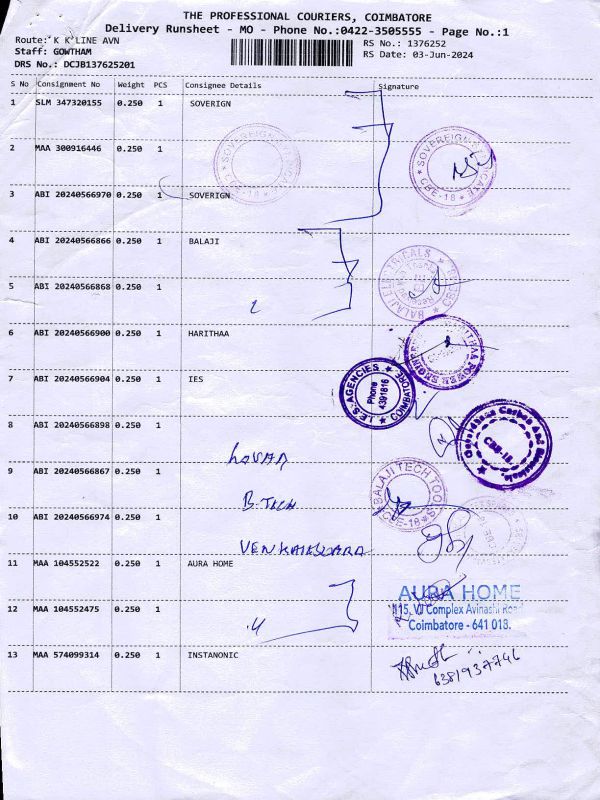 THE PROFESSIONAL COURIERS, COIMBATORE
Delivery Runsheet - MO - Phone No.:0422-3505555 - Page No.:1
Route: K K LINE AVN
RS No.: 1376252
Staff: GOWTHAM
RS Date: 03-Jun-2024
DRS No.: DCJB137625201
S No Consignment No Weight PCS Consignee Details Signature
1 SLM 347320155 0.250 1 SOVERIGN
2 MAA 300916446 0.250 1
★ SOVEREIGN
CBE-18 ★
3 ABI 20240566970 0.250 1 SOVERIGN
4 ABI 20240566866 0.250 1 BALAJI
5 ABI 20240566868 0.250 1
6 ABI 20240566900 0.250 1 HARITHAA
7 ABI 20240566904 0.250 1 IES
I.E.S. AGENCIES ★ COIMBATORE ★
Phone
4391816
8 ABI 20240566898 0.250 1
CBE-18.
9 ABI 20240566867 0.250 1
B.TECH
BALAJI TECH TOOLS
CBE-18
10 ABI 20240566974 0.250 1
11 MAA 104552522 0.250 1 AURA HOME
AURA HOME
115, VJ Complex Avinashi Road
Coimbatore - 641 018.
12 MAA 104552475 0.250 1
13 MAA 574099314 0.250 1 INSTANONIC
6381937746